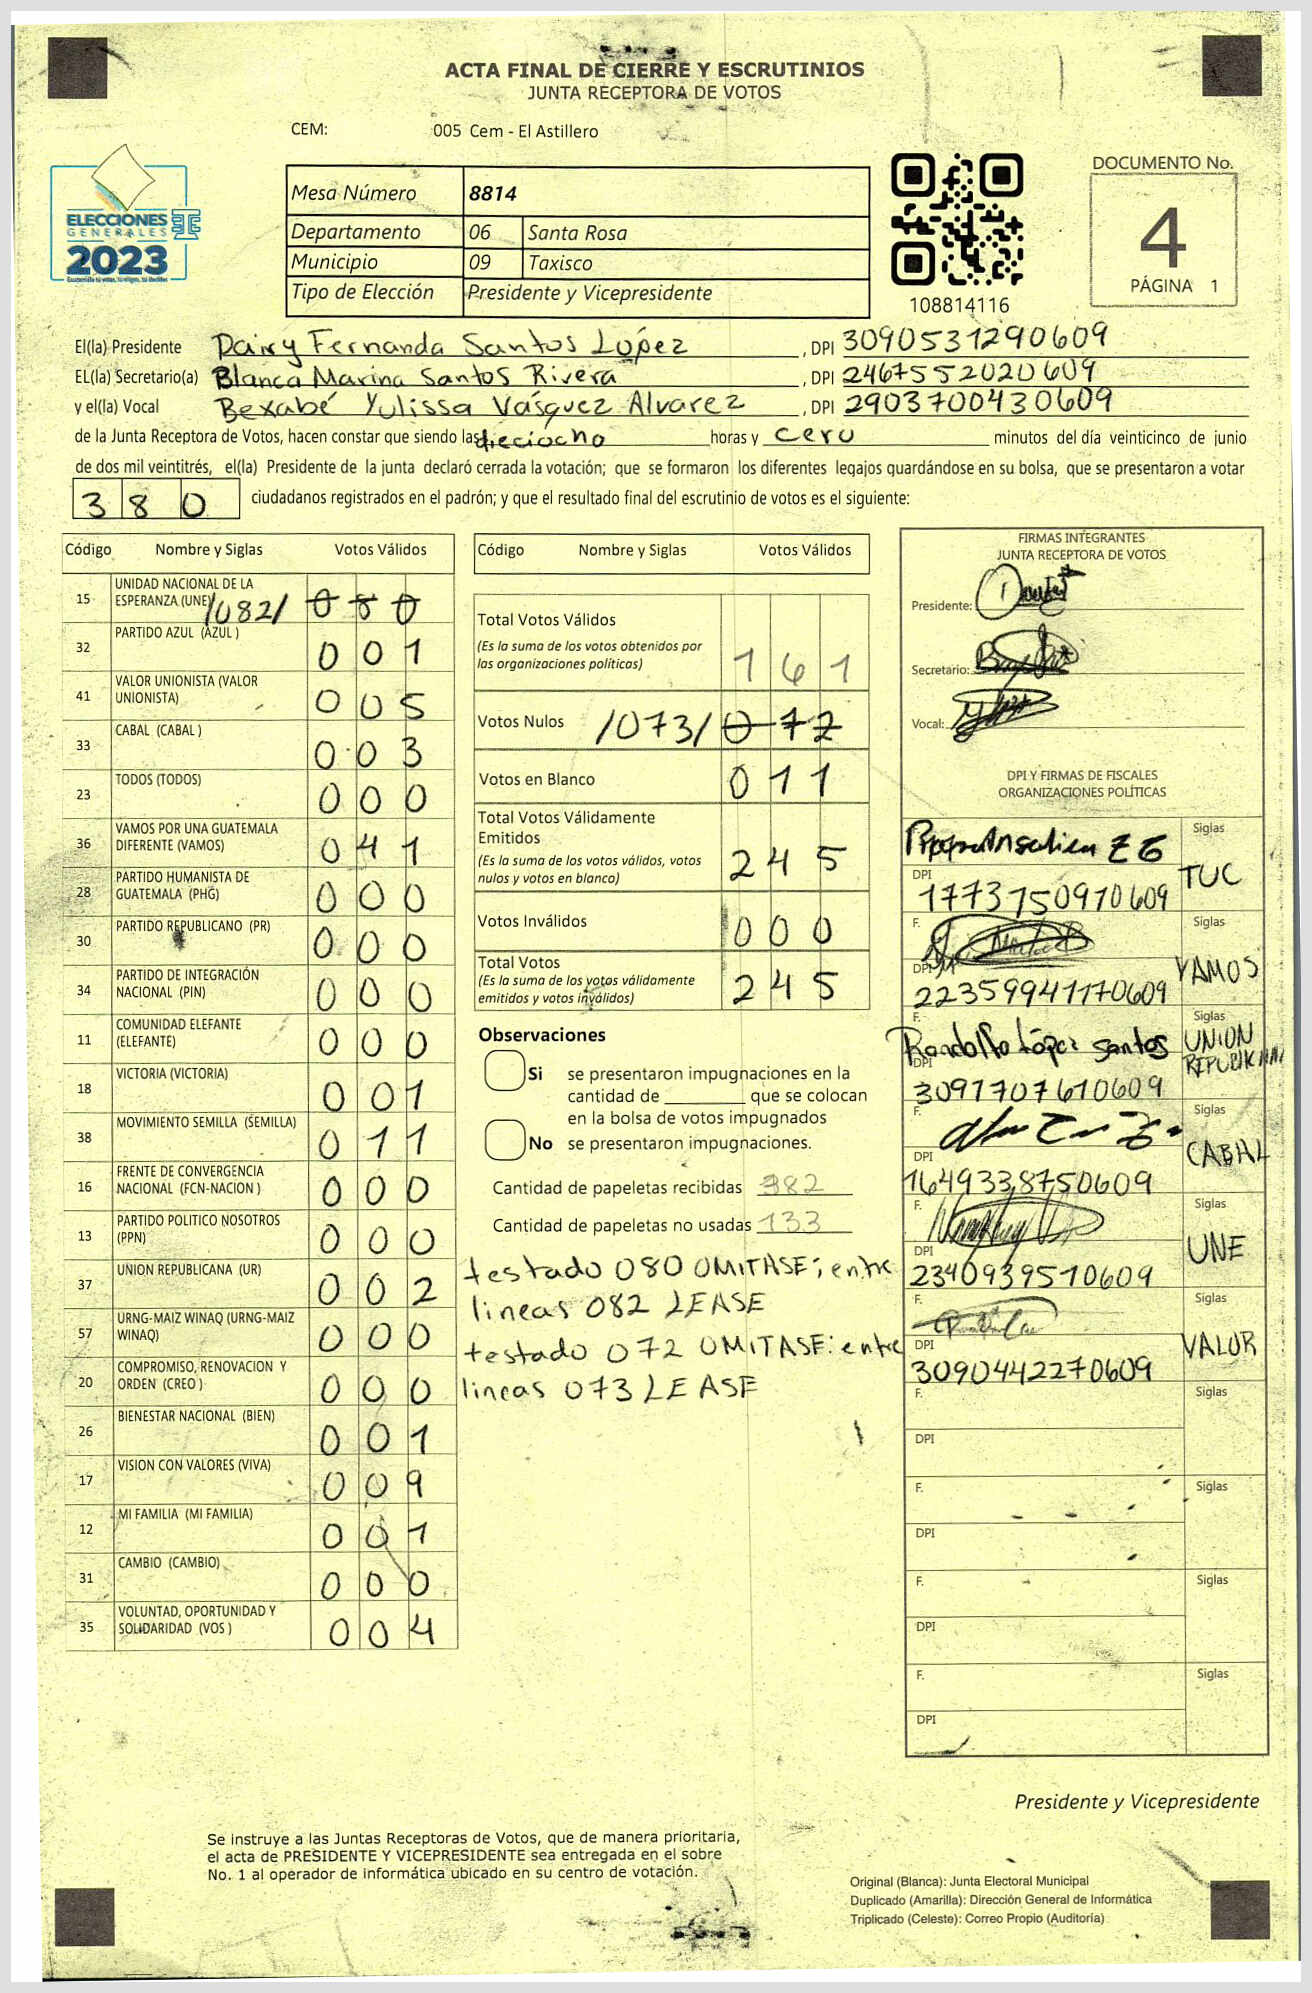 ACTA FINAL DE CIERRE Y ESCRUTINIOS
JUNTA RECEPTORA DE VOTOS
CEM: 005 Cem - El Astillero
ELECCIONES
GENERALES
2023
Mesa Número 8814
Departamento 06 Santa Rosa
Municipio 09 Taxisco
Tipo de Elección Presidente y Vicepresidente
108814116
DOCUMENTO No.
4
PÁGINA 1
El(la) Presidente Dairy Fernanda Santos López , DPI 3090531290609
EL(la) Secretario(a) Blanca Marina Santos Rivera , DPI 2467552020609
y el(la) Vocal Bexabé Yulissa Vásquez Alvarez , DPI 2903700430609
de la Junta Receptora de Votos, hacen constar que siendo las dieciocho horas y cero minutos del día veinticinco de junio
de dos mil veintitrés, el(la) Presidente de la junta declaró cerrada la votación; que se formaron los diferentes legajos guardándose en su bolsa, que se presentaron a votar
380 ciudadanos registrados en el padrón; y que el resultado final del escrutinio de votos es el siguiente:
Código Nombre y Siglas Votos Válidos
15 UNIDAD NACIONAL DE LA
ESPERANZA (UNE) /082/ 080
32 PARTIDO AZUL (AZUL ) 001
41 VALOR UNIONISTA (VALOR
UNIONISTA) 005
33 CABAL (CABAL ) 003
23 TODOS (TODOS) 000
36 VAMOS POR UNA GUATEMALA
DIFERENTE (VAMOS) 041
28 PARTIDO HUMANISTA DE
GUATEMALA (PHG) 000
30 PARTIDO REPUBLICANO (PR) 000
34 PARTIDO DE INTEGRACIÓN
NACIONAL (PIN) 000
11 COMUNIDAD ELEFANTE
(ELEFANTE) 000
18 VICTORIA (VICTORIA) 001
38 MOVIMIENTO SEMILLA (SEMILLA) 011
16 FRENTE DE CONVERGENCIA
NACIONAL (FCN-NACION ) 000
13 PARTIDO POLITICO NOSOTROS
(PPN) 000
37 UNION REPUBLICANA (UR) 002
57 URNG-MAIZ WINAQ (URNG-MAIZ
WINAQ) 000
20 COMPROMISO, RENOVACION Y
ORDEN (CREO ) 000
26 BIENESTAR NACIONAL (BIEN) 001
17 VISION CON VALORES (VIVA) 009
12 MI FAMILIA (MI FAMILIA) 001
31 CAMBIO (CAMBIO) 000
35 VOLUNTAD, OPORTUNIDAD Y
SOLIDARIDAD (VOS ) 004
Código Nombre y Siglas Votos Válidos
Total Votos Válidos
(Es la suma de los votos obtenidos por
las organizaciones políticas) 161
Votos Nulos /073/ 072
Votos en Blanco 011
Total Votos Válidamente
Emitidos
(Es la suma de los votos válidos, votos
nulos y votos en blanco) 245
Votos Inválidos 000
Total Votos
(Es la suma de los votos válidamente
emitidos y votos inválidos) 245
Observaciones
Si se presentaron impugnaciones en la
cantidad de ________ que se colocan
en la bolsa de votos impugnados
No se presentaron impugnaciones.
Cantidad de papeletas recibidas 382
Cantidad de papeletas no usadas 133
testado 080 OMITASE; entre
lineas 082 LEASE
testado 072 OMITASE: entre
lineas 073 LEASE
FIRMAS INTEGRANTES
JUNTA RECEPTORA DE VOTOS
Presidente:
Secretario:
Vocal:
DPI Y FIRMAS DE FISCALES
ORGANIZACIONES POLÍTICAS
Siglas
TUC
DPI
1773750970609
F. Siglas
VAMOS
DPI
2235994170609
F. Siglas
Randolfo López Santos UNION
DPI
3097707610609
F. Siglas
CABAL
DPI
1649338750609
F. Siglas
UNE
DPI
2340939570609
F. Siglas
VALOR
DPI
3090442270609
F. Siglas
DPI
F. Siglas
DPI
F. Siglas
DPI
F. Siglas
DPI
Presidente y Vicepresidente
Se instruye a las Juntas Receptoras de Votos, que de manera prioritaria,
el acta de PRESIDENTE Y VICEPRESIDENTE sea entregada en el sobre
No. 1 al operador de informática ubicado en su centro de votación.
Original (Blanca): Junta Electoral Municipal
Duplicado (Amarilla): Dirección General de Informática
Triplicado (Celeste): Correo Propio (Auditoría)